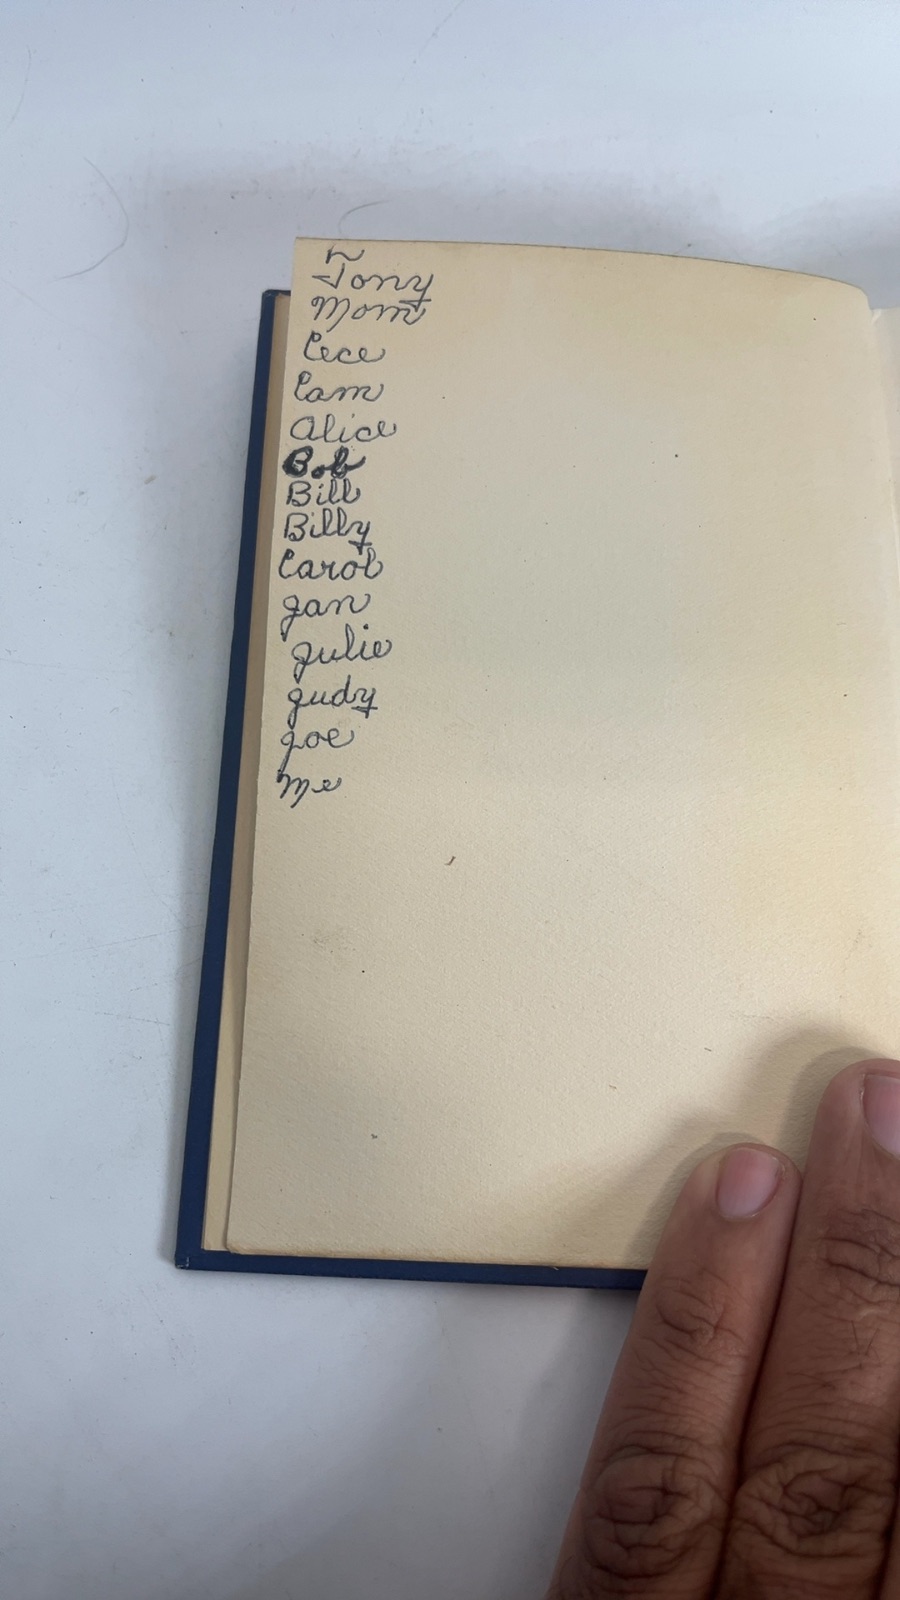 Tony
Mom
Cece
Cam
Alice
Bob
Bill
Billy
Carol
Jan
Julie
Judy
Joe
Me